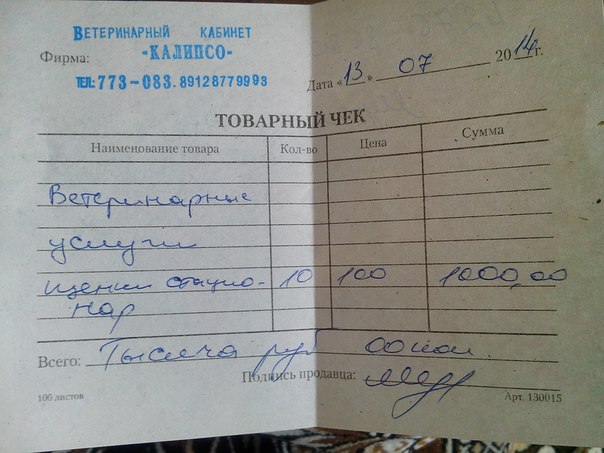 ВЕТЕРИНАРНЫЙ КАБИНЕТ
Фирма: «КАЛИПСО»
ТЕЛ: 773-083. 89128779993
Дата «13» 07 2014г.
ТОВАРНЫЙ ЧЕК
Наименование товара Кол-во Цена Сумма
Ветеринарные
услуги
щенки стацио- 10 100 1000,00
нар
Всего: Тысяча руб 00 коп.
Подпись продавца:
100 листов Арт. 130015